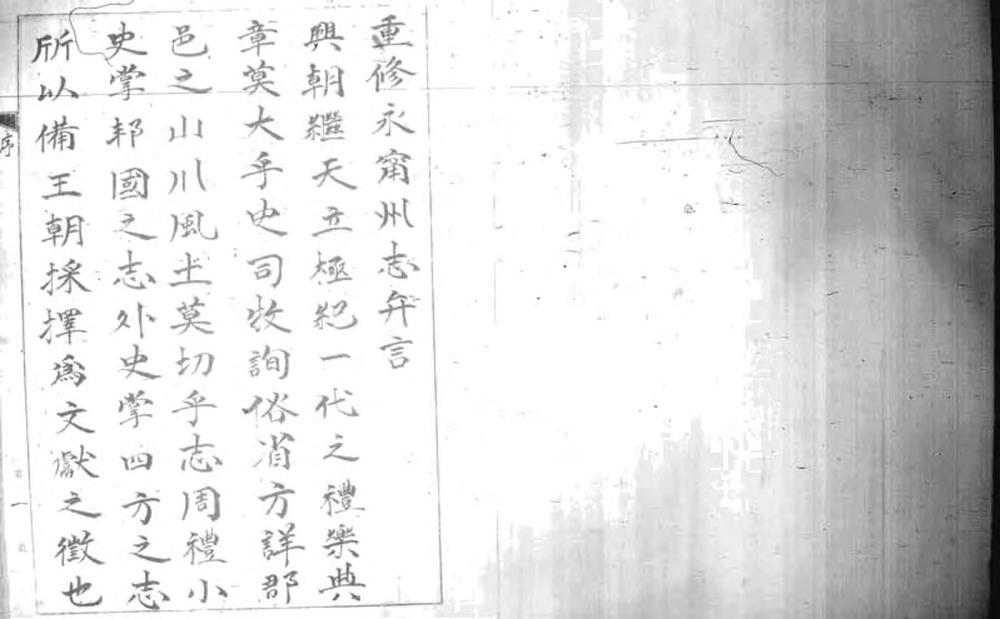 重修永甯州志弁言
興朝繼天立極紀一代之禮樂典
章莫大乎史司牧詢俗省方詳郡
邑之山川風土莫切乎志周禮小
史掌邦國之志外史掌四方之志
所以備王朝採擇爲文獻之徵也
序